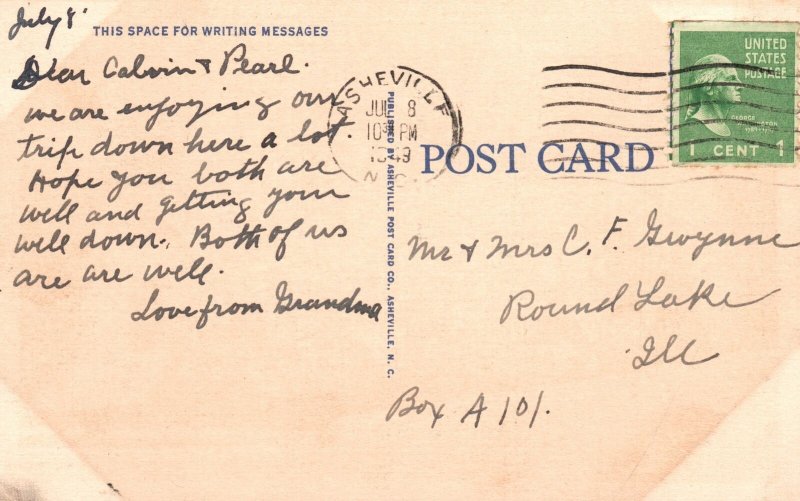 July 8
THIS SPACE FOR WRITING MESSAGES
Dear Calvin & Pearl.
we are enjoying our
trip down here a lot.
Hope you both are
well and getting your
well down. Both of us
are are well.
Love from Grandma
PUBLISHED BY ASHEVILLE POST CARD CO., ASHEVILLE, N. C.
ASHEVILLE
JUL 8
PM
1949
N.C.
UNITED
STATES
POSTAGE
GEORGE WASHINGTON
1789-1797
1 CENT 1
POST CARD
Mr & Mrs C. F. Gwynne
Round Lake
Ill
Box A 101.